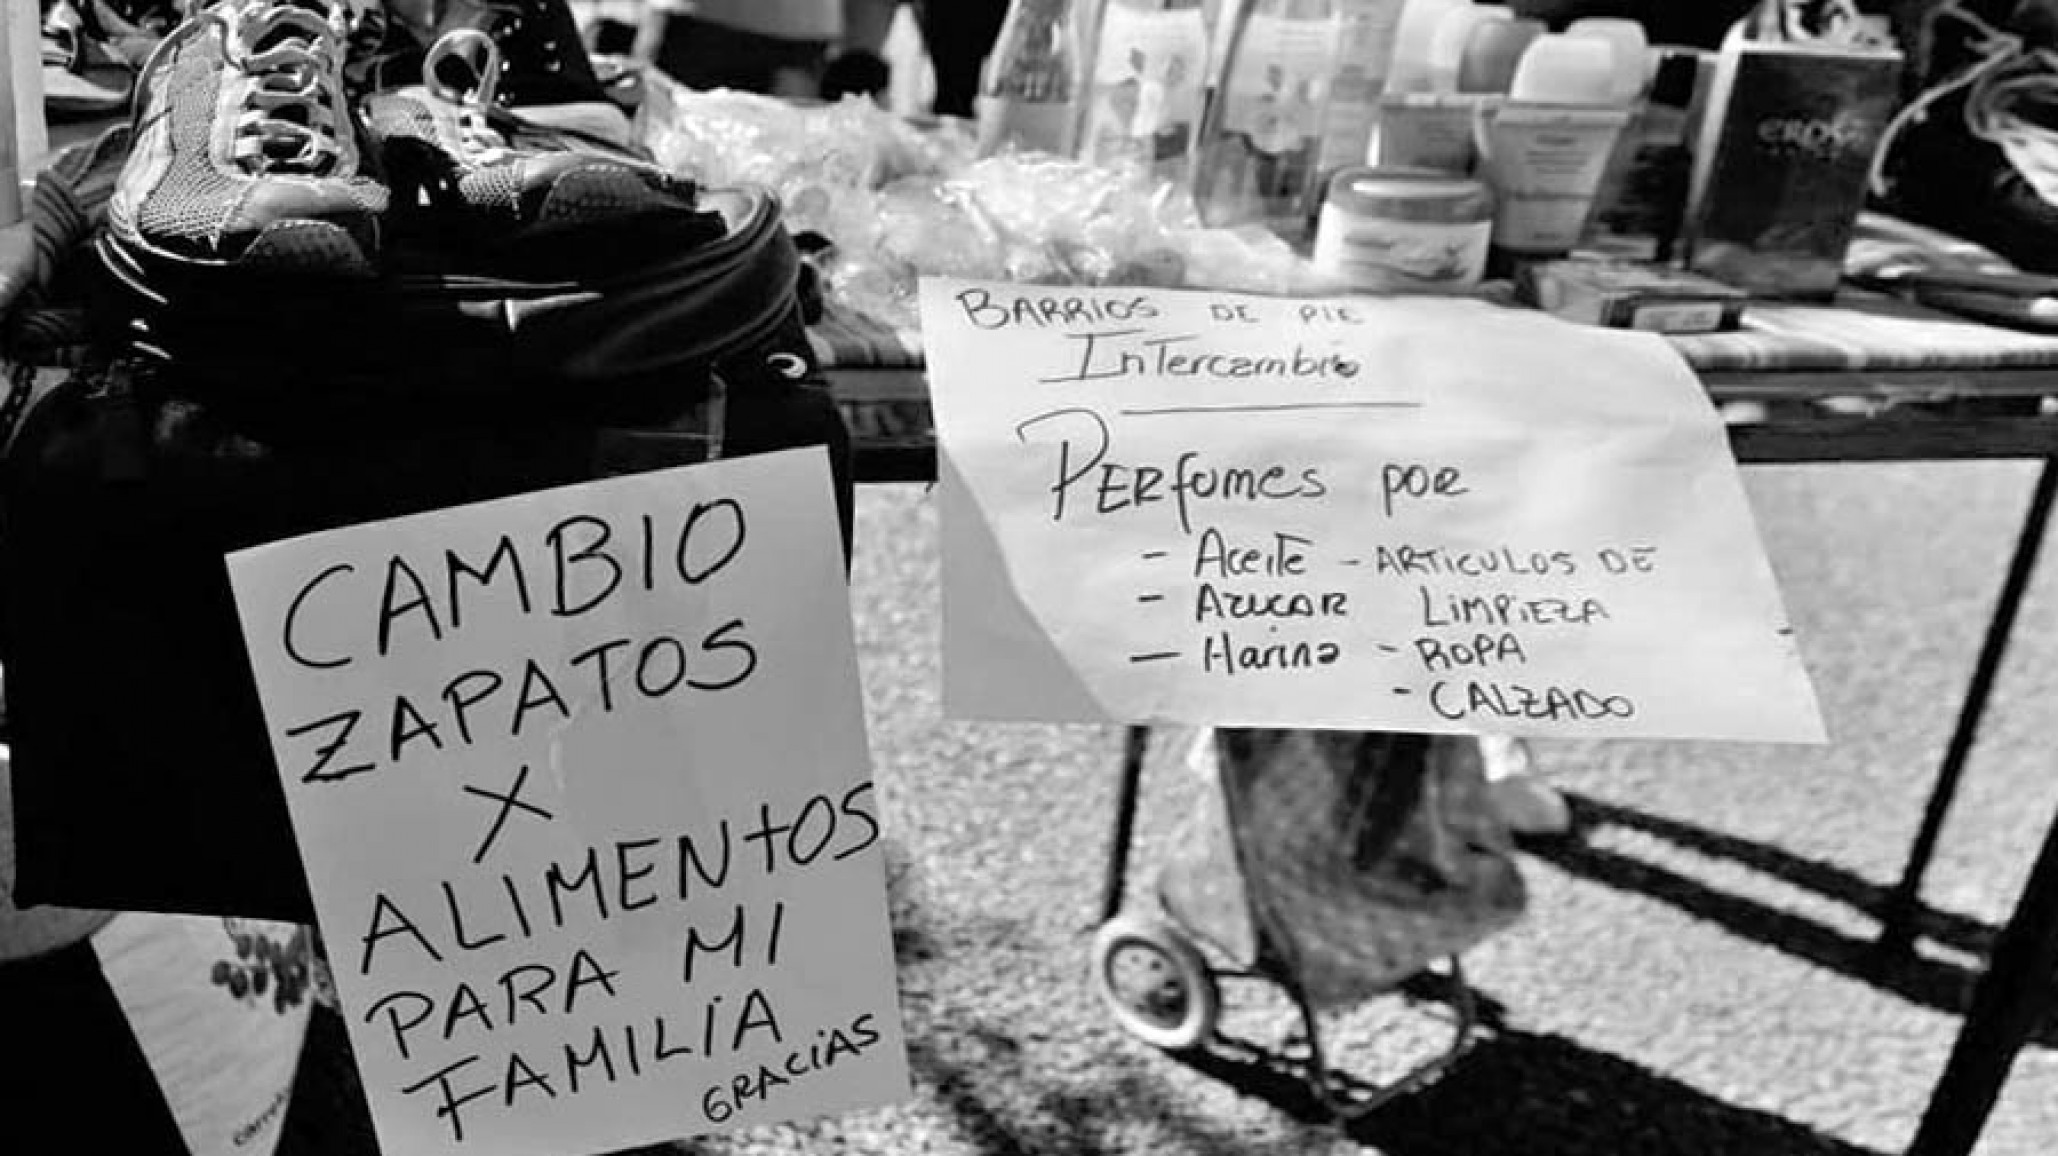 CAMBIO
ZAPATOS
X
ALIMENTOS
PARA MI
FAMILIA
GRACIAS
BARRIOS DE PIE
Intercambio
PERfumes por
- Aceite - ARTICULOS DE
- AZUCAR LIMPIEZA
- Harina - ROPA
- CALZADO
eros